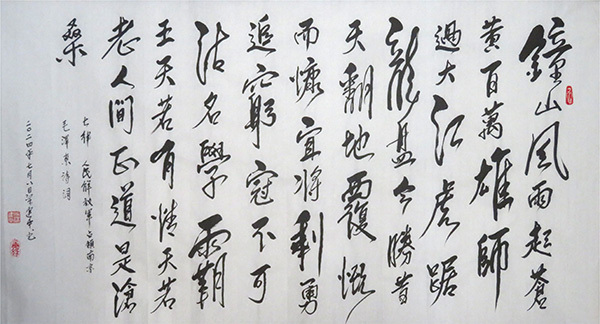 鐘山风雨起蒼
黄百萬雄師
過大江虎踞
龍盘今勝昔
天翻地覆慨
而慷宜将剩勇
追窮寇不可
沽名學霸
王天若有情天若
老人間正道是滄
桑
七律 人民解放軍占領南京
毛澤東詩词
二〇二四年七月八日